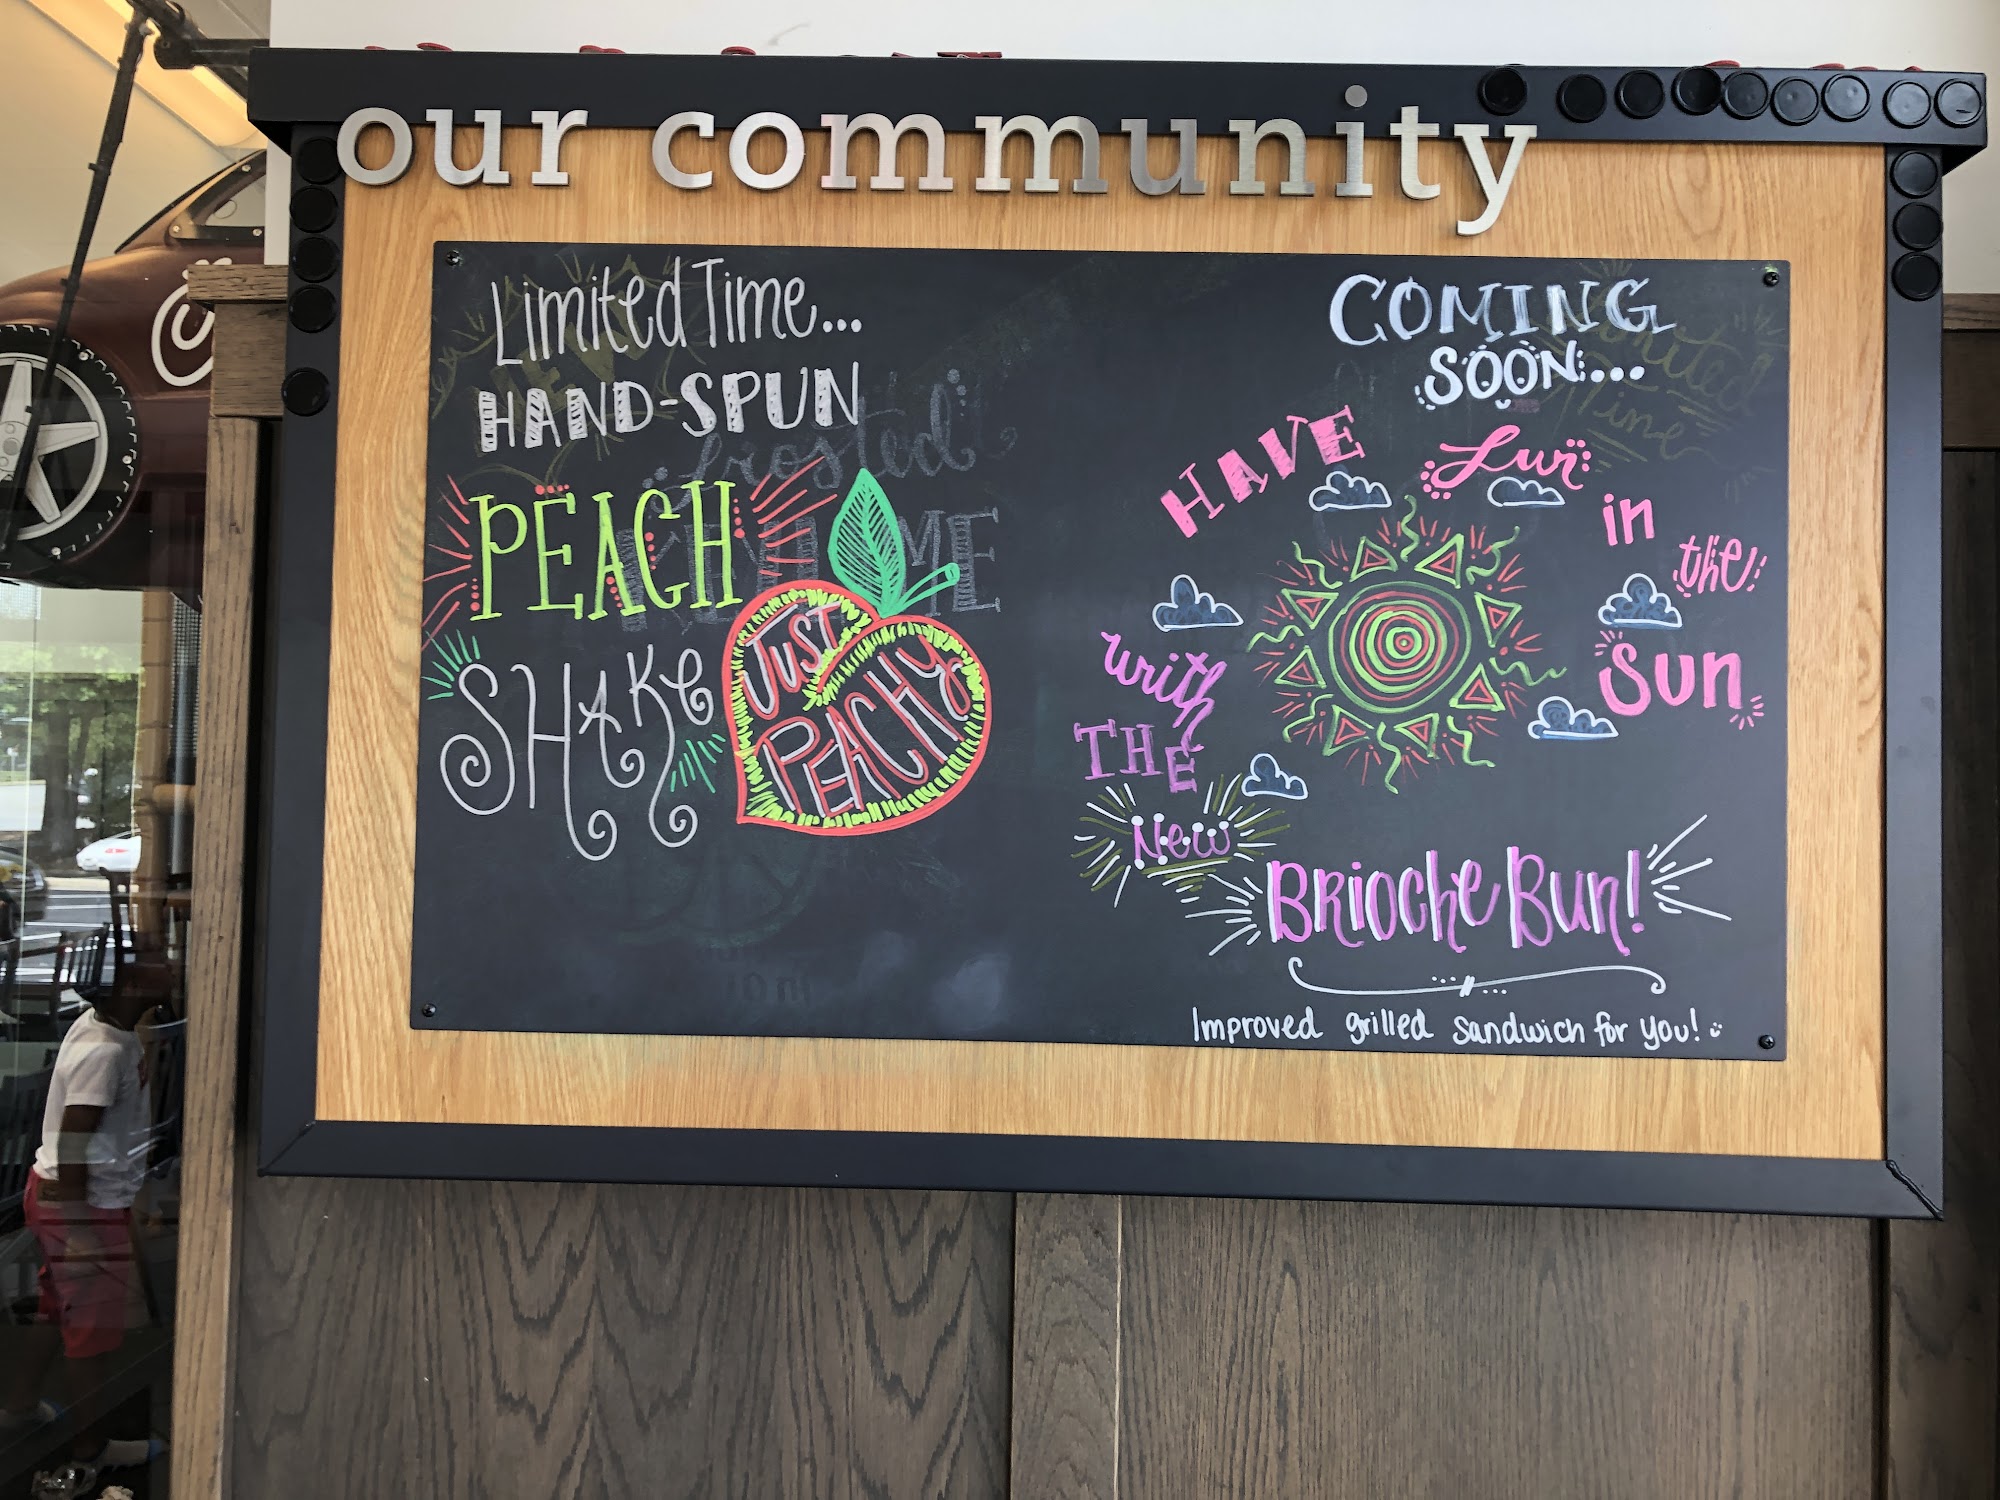 our community
Limited Time...
HAND-SPUN
PEACH
SHAKE
JUST
PEACHY
COMING
SOON...
HAVE
Fun
in
the
Sun
with
THE
New
BRIOCHE BUN!
Improved grilled sandwich for you!
frosted
KEY LIME
Limited
Time
NEW